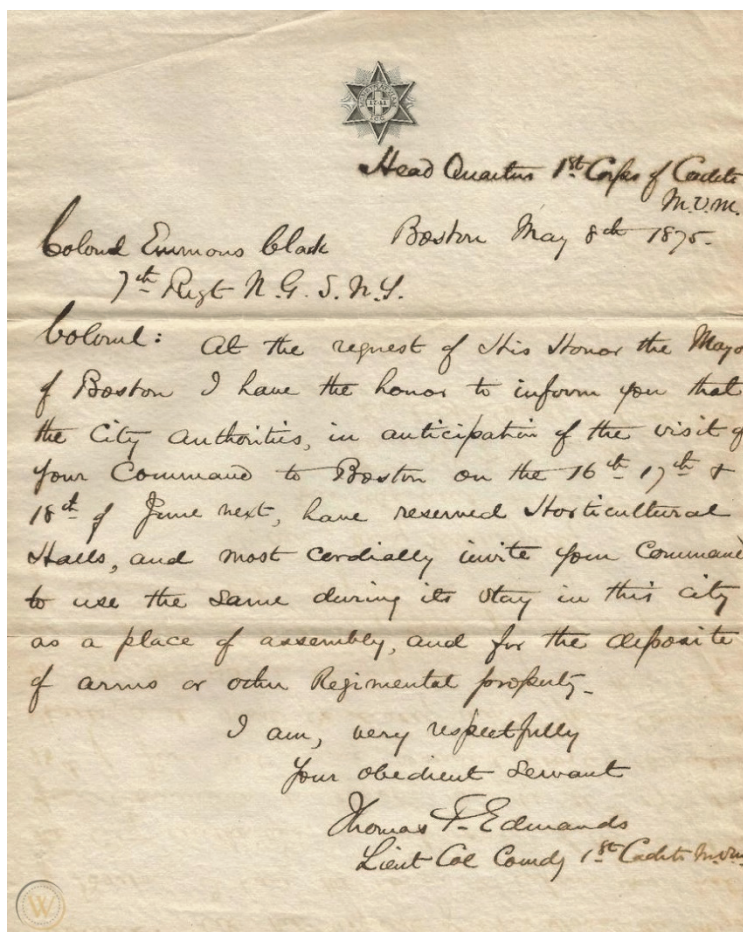 Head Quarters 1st Corps of Cadets
M.V.M.
Boston May 8th 1875.
Colonel Emmons Clark
7th Regt N.G.S.N.Y.
Colonel: At the request of His Honor the Mayo
of Boston I have the honor to inform you that
the City Authorities, in anticipation of the visit of
your Command to Boston on the 16th 17th &
18th of June next, have reserved Horticultural
Halls, and most cordially invite your Command
to use the same during its stay in this city
as a place of assembly, and for the deposite
of arms or other Regimental property.
I am, very respectfully
Your obedient servant
Thomas F. Edmands
Lieut Col Comdg 1st Cadets M.V.M.
W